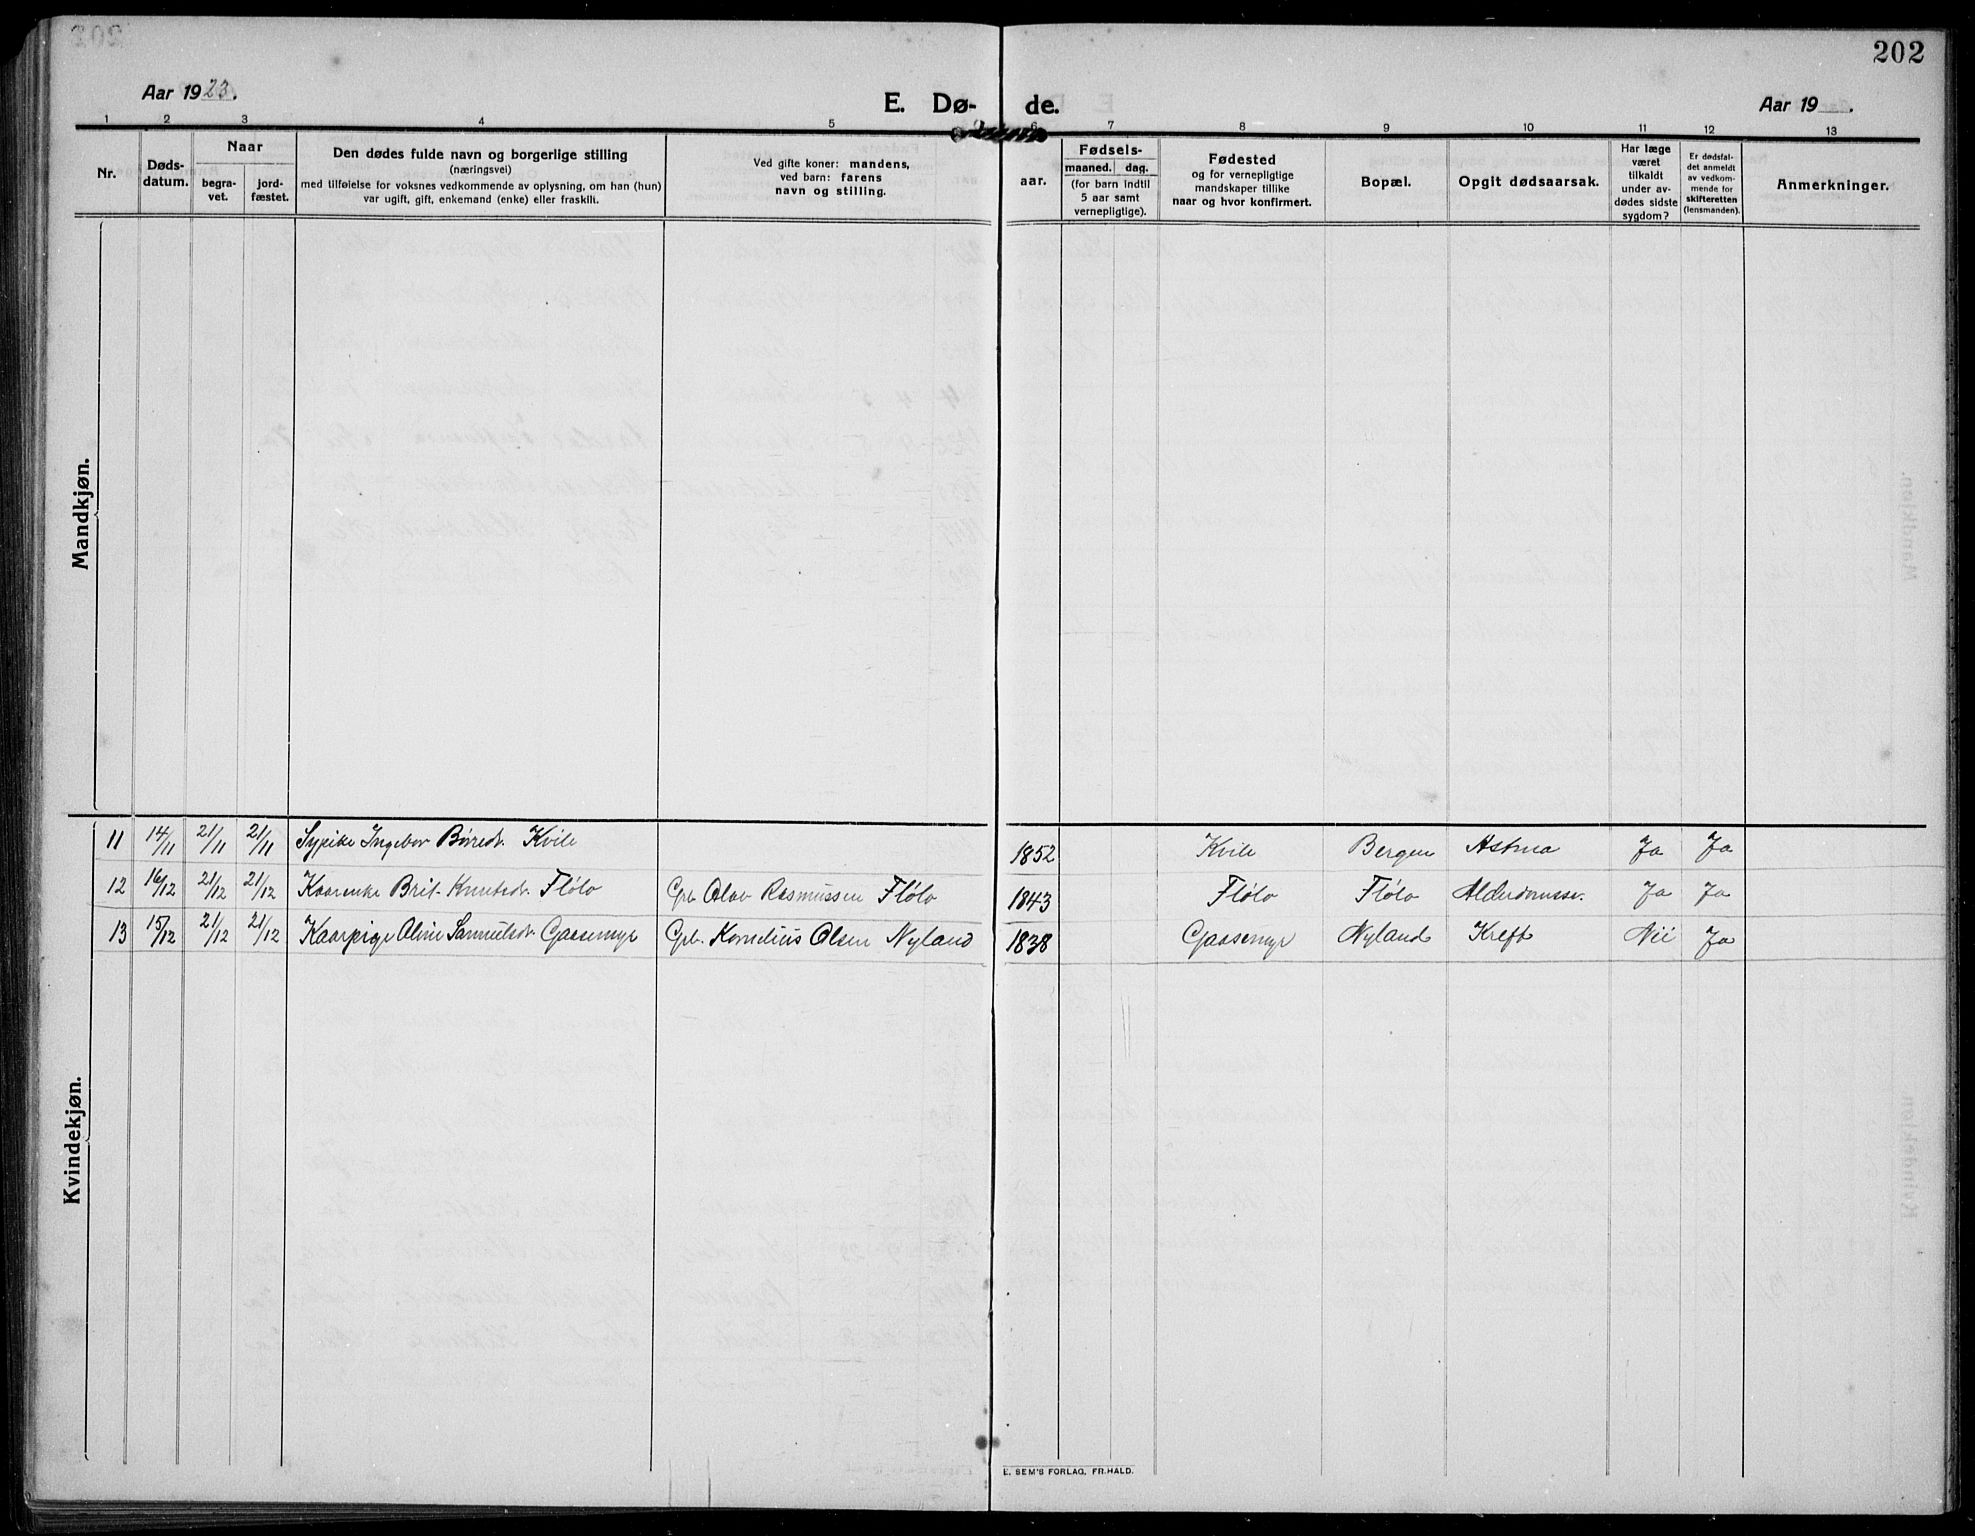 202
Aar 1923.
E. Dø- de.
Aar 19 .
1 2 3 4 5 6 7 8 9 10 11 12 13
Nr.
Døds-
datum.
Naar
begra-
vet.
jord-
fæstet.
Den dødes fulde navn og borgerlige stilling
(næringsvei)
med tilføielse for voksnes vedkommende av oplysning, om han (hun)
var ugift, gift, enkemand (enke) eller fraskilt.
Ved gifte koner: mandens,
ved barn: farens
navn og stilling.
aar.
Fødsels-
maaned. dag.
(for barn indtil
5 aar samt
vernepligtige).
Fødested
og for vernepligtige
mandskaper tillike
naar og hvor konfirmert.
Bopæl.
Opgit dødsaarsak.
Har læge
været
tilkaldt
under av-
dødes sidste
sygdom?
Er dødsfal-
det anmeldt
av vedkom-
mende for
skifteretten
(lensmanden).
Anmerkninger.
Mandkjøn.
Kvindekjøn.
11 14/11 21/11 21/11 Sypike Ingebor Børedr. Kvile 1852 Kvile Bergen Astma Ja Ja
12 16/12 21/12 21/12 Kaarenke Brit Knutsdr. Flølo Grb. Olav Rasmussen Flølo 1843 Flølo Flølo Ja Ja
13 15/12 21/12 21/12 Kaarpige Aline Samuelsdr. Gaasemyr Grb. Kornelius Olsen Nyland 1838 Gaasemyr Nyland Kreft Nei Ja
E. SEM'S FORLAG, FR.HALD.